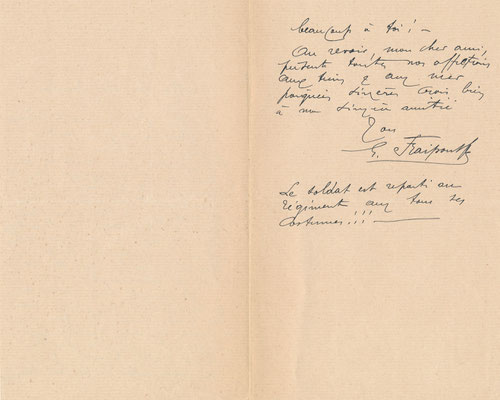 beaucoup à toi! –
Au revoir, mon cher ami,
présente toutes nos affections
aux tiens & aux
sincères crois bien
à ma sincère amitié
Ton
G. Fraipont
Le soldat est reparti au
régiment avec tous ses
costumes!!!